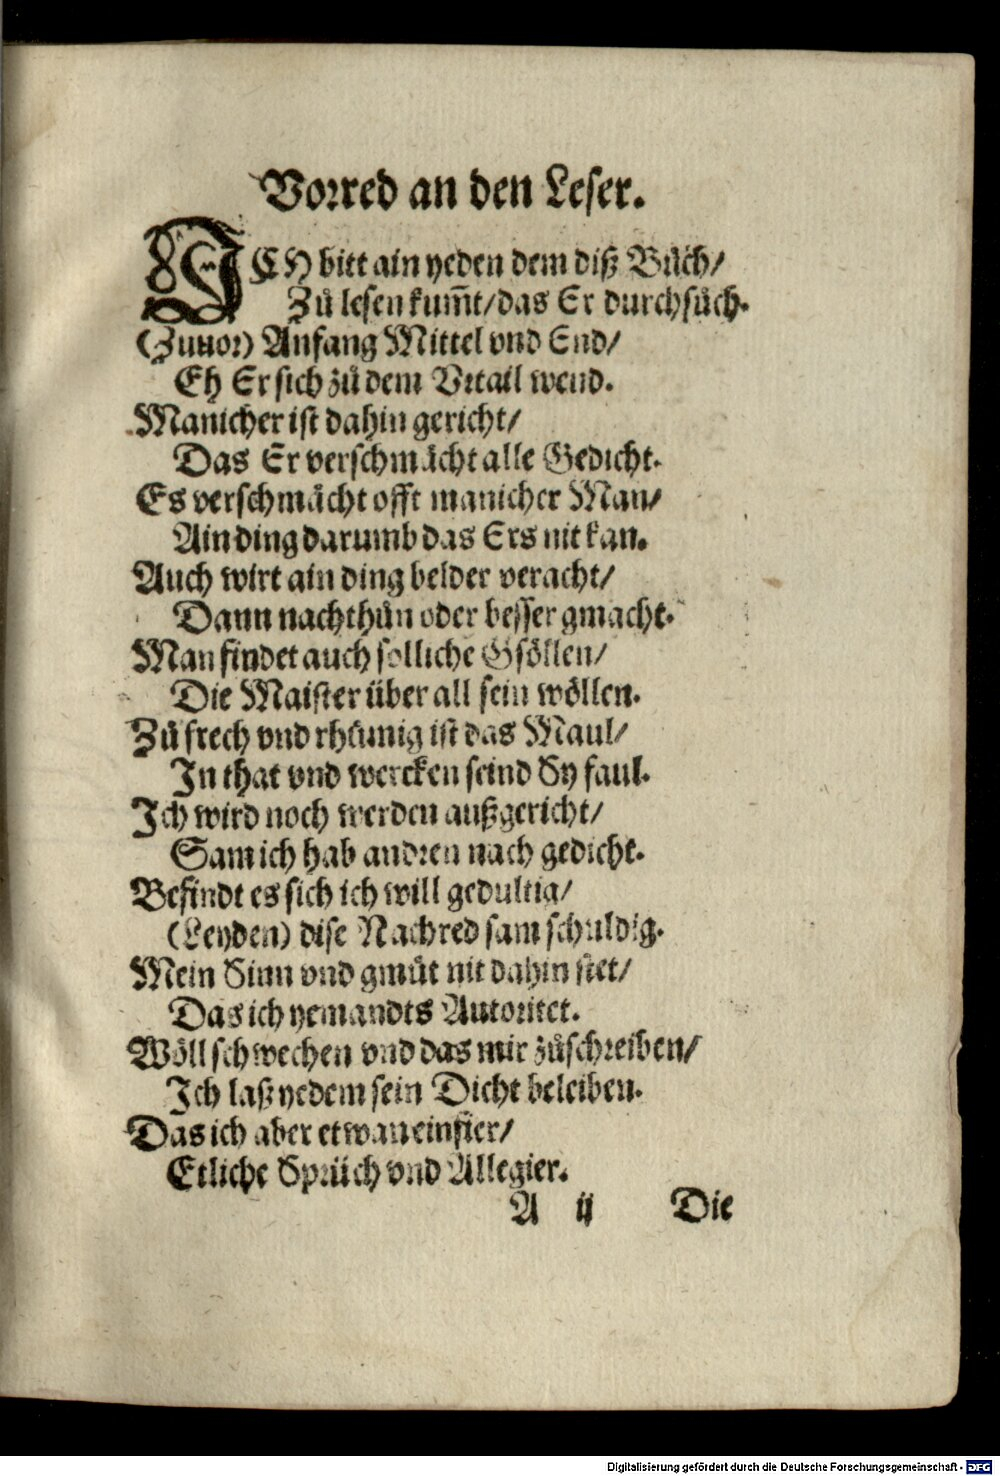 Vorred an den Leser.
ICH bitt ain yeden dem diß Bůch/
Zů lesen kum̃t/das Er durchsůch.
(Zuuor) Anfang Mittel vnd End/
Eh Er sich zů dem Vrtail wend.
Manicher ist dahin gericht/
Das Er verschmächt alle Gedicht.
Es verschmächt offt manicher Man/
Ain ding darumb das Ers nit kan.
Auch wirt ain ding belder veracht/
Dann nachthůn oder besser gmacht.
Man findet auch solliche Gsöllen/
Die Maister über all sein wöllen.
Zů frech vnd rhůmig ist das Maul/
In that vnd wercken seind Sy faul.
Ich wird noch werden außgericht/
Sam ich hab andren nach gedicht.
Befindt es sich ich will gedultig/
(Leyden) dise Nachred sam schuldig.
Mein Sinn vnd gmůt nit dahin stet/
Das ich yemandts Autoritet.
Wöll schwechen vnd das mir zůschreiben/
Ich laß yedem sein Dicht beleiben.
Das ich aber etwan einfier/
Etliche Sprüch vnd Allegier.
A ij Die
Digitalisierung gefördert durch die Deutsche Forschungsgemeinschaft - DFG